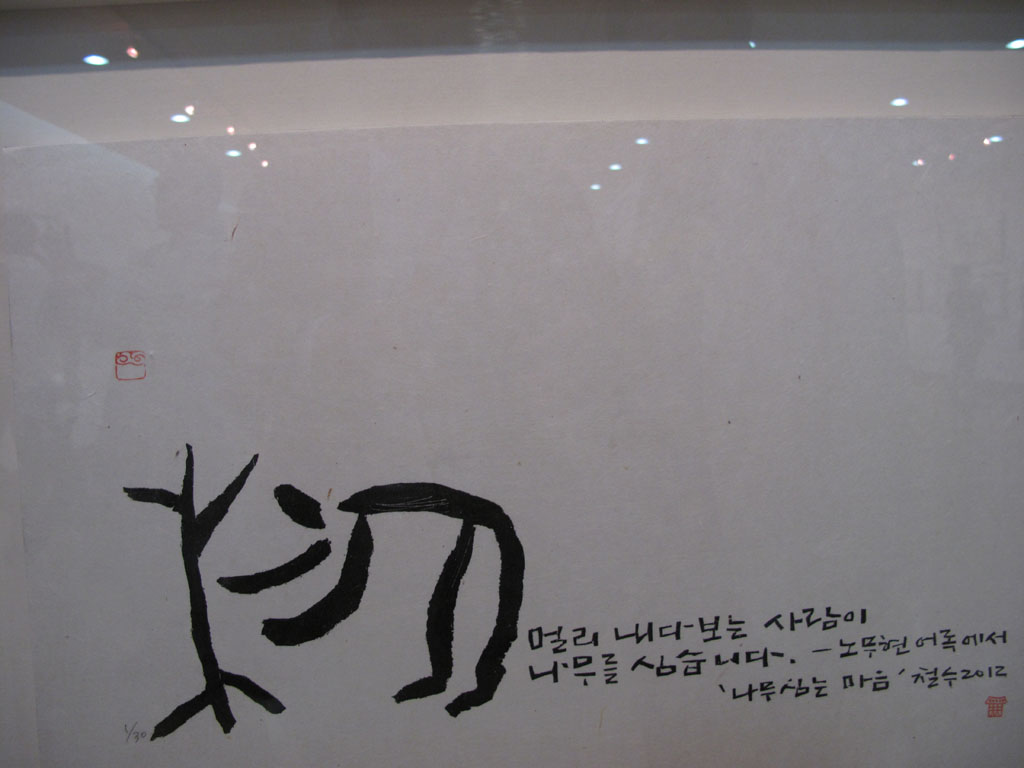 멀리 내다보는 사람이
나무를 심습니다. - 노무현 어록에서
'나무심는 마음' 철수 2012
1/30